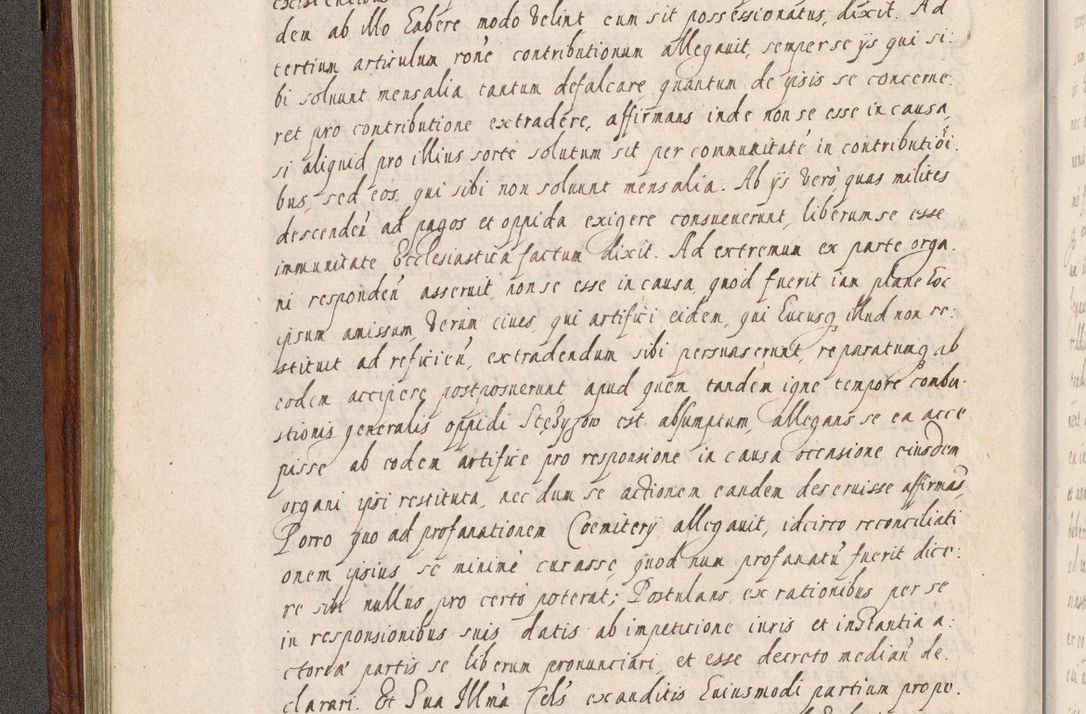 dem ab illo habere modo velint cum sit possessionatus, dixit. Ad
tertium articulum ronè contributionum allegauit, semper se ÿs qui si:
bi soluunt mensalia tantum defalcare quantum de ipsis se concerne
ret pro contributione extradere, affirmans inde non se esse in causa,
si aliquid pro illius sorte solutum sit per communitatè in contributiōi.
bus, sed eos, qui sibi non soluunt mensalia. Ab ÿs verò, quas milites
descendeñ ad pagos et oppida exigere consueuerunt, liberum se esse
immunitate Ecclesiastica factum dixit. Ad extremum ex parte orga.
ni respondeñ asseruit, non se esse in causa quod fuerit iam plane hoc
ipsum amissum, verùm ciues, qui artifici eidem, qui hucusq illud non re:
stituit ad reficieñ, extradendum sibi persuaserunt, reparatumq ab
eodem accipere postposuerunt, apud quem tandem igne tempore combu.
stionis generalis oppidi Stężyzow est absumptum, allegans se ea acce
pisse ab eodem artifice pro responsione in causa occasione eiusdem
organi ipsi restituta, nec dum se actionem eandem deseruisse affirmās,
Porro quo ad profanationem Coemiterÿ allegauit, idcirco reconciliati
onem ipsius se minimè curasse, quod num profanatū fuerit dice:
re sibi nullus pro certò poterat; Postulans, ex rationibus per se
in responsionibus suis datis ab impetitione iuris et instantia a:
ctorea partis se liberum pronunciari, et esse decreto mediañ de.
clarari. Et Sua Illmà Cels exauditis huiusmodi partium propo.